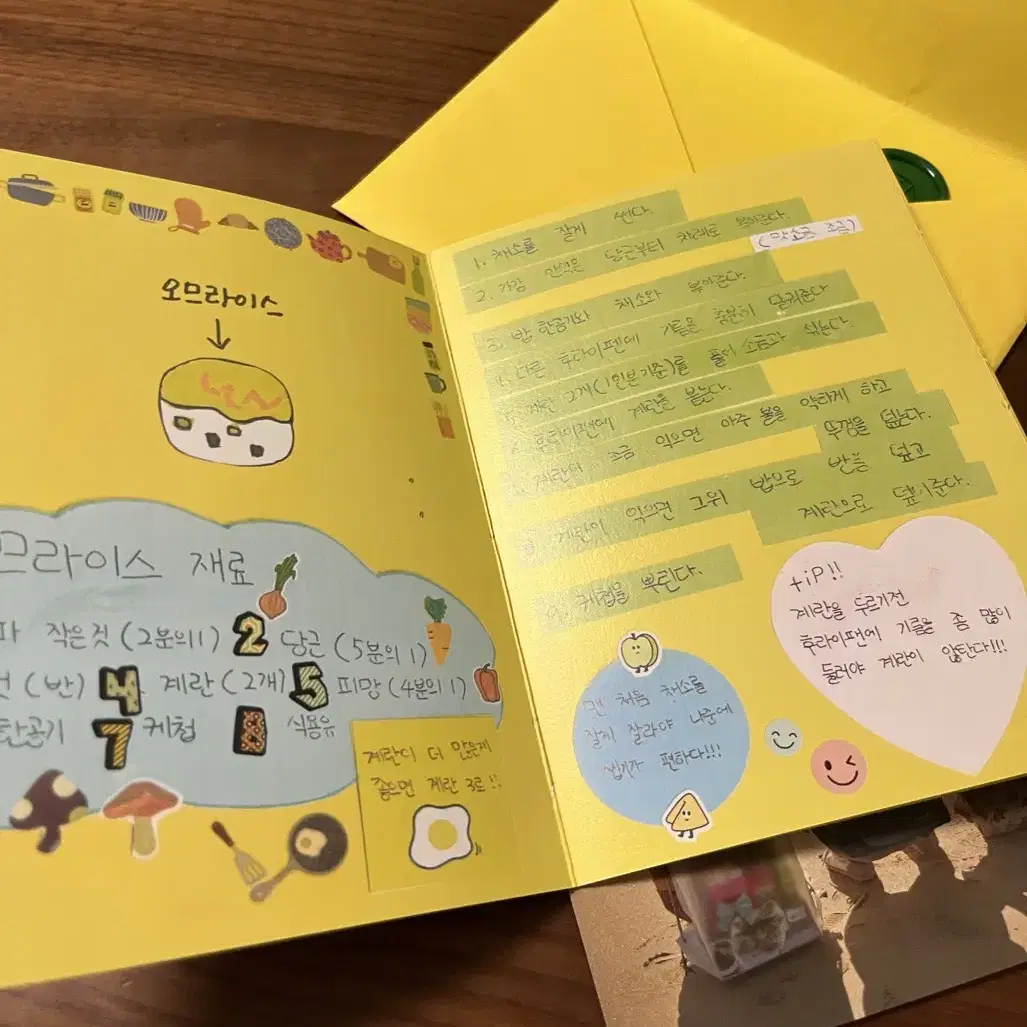 오므라이스
므라이스 재료
파 작은것 (2분의1) 2 당근 (5분의 1)
(반) 4 계란 (2개) 5 피망 (4분의1)
한공기 7 케첩 8 식용유
계란이 더 많은게
좋으면 계란 3로!!
1. 채소를 잘게 썬다.
2. 가장 안익은 당근부터 차례로 볶아준다.
(맛소금 조금)
3. 밥 한공기와 채소와 볶아준다.
4. 다른 후라이펜에 기름을 충분히 달궈준다
계란 2개(1인분기준)를 풀어 소금과 섞는다.
후라이팬에 계란을 붓는다.
계란이 조금 익으면 아주 불을 약하게 하고
뚜껑을 덮는다.
계란이 익으면 그위 밥으로 반을 덮고
계란으로 덮어준다.
케첩을 뿌린다.
tip!!
계란을 두르기전
후라이팬에 기름을 좀 많이
둘러야 계란이 않탄다!!!
맨 처음 채소를
잘게 잘라야 나중에
씹기가 편하다!!!